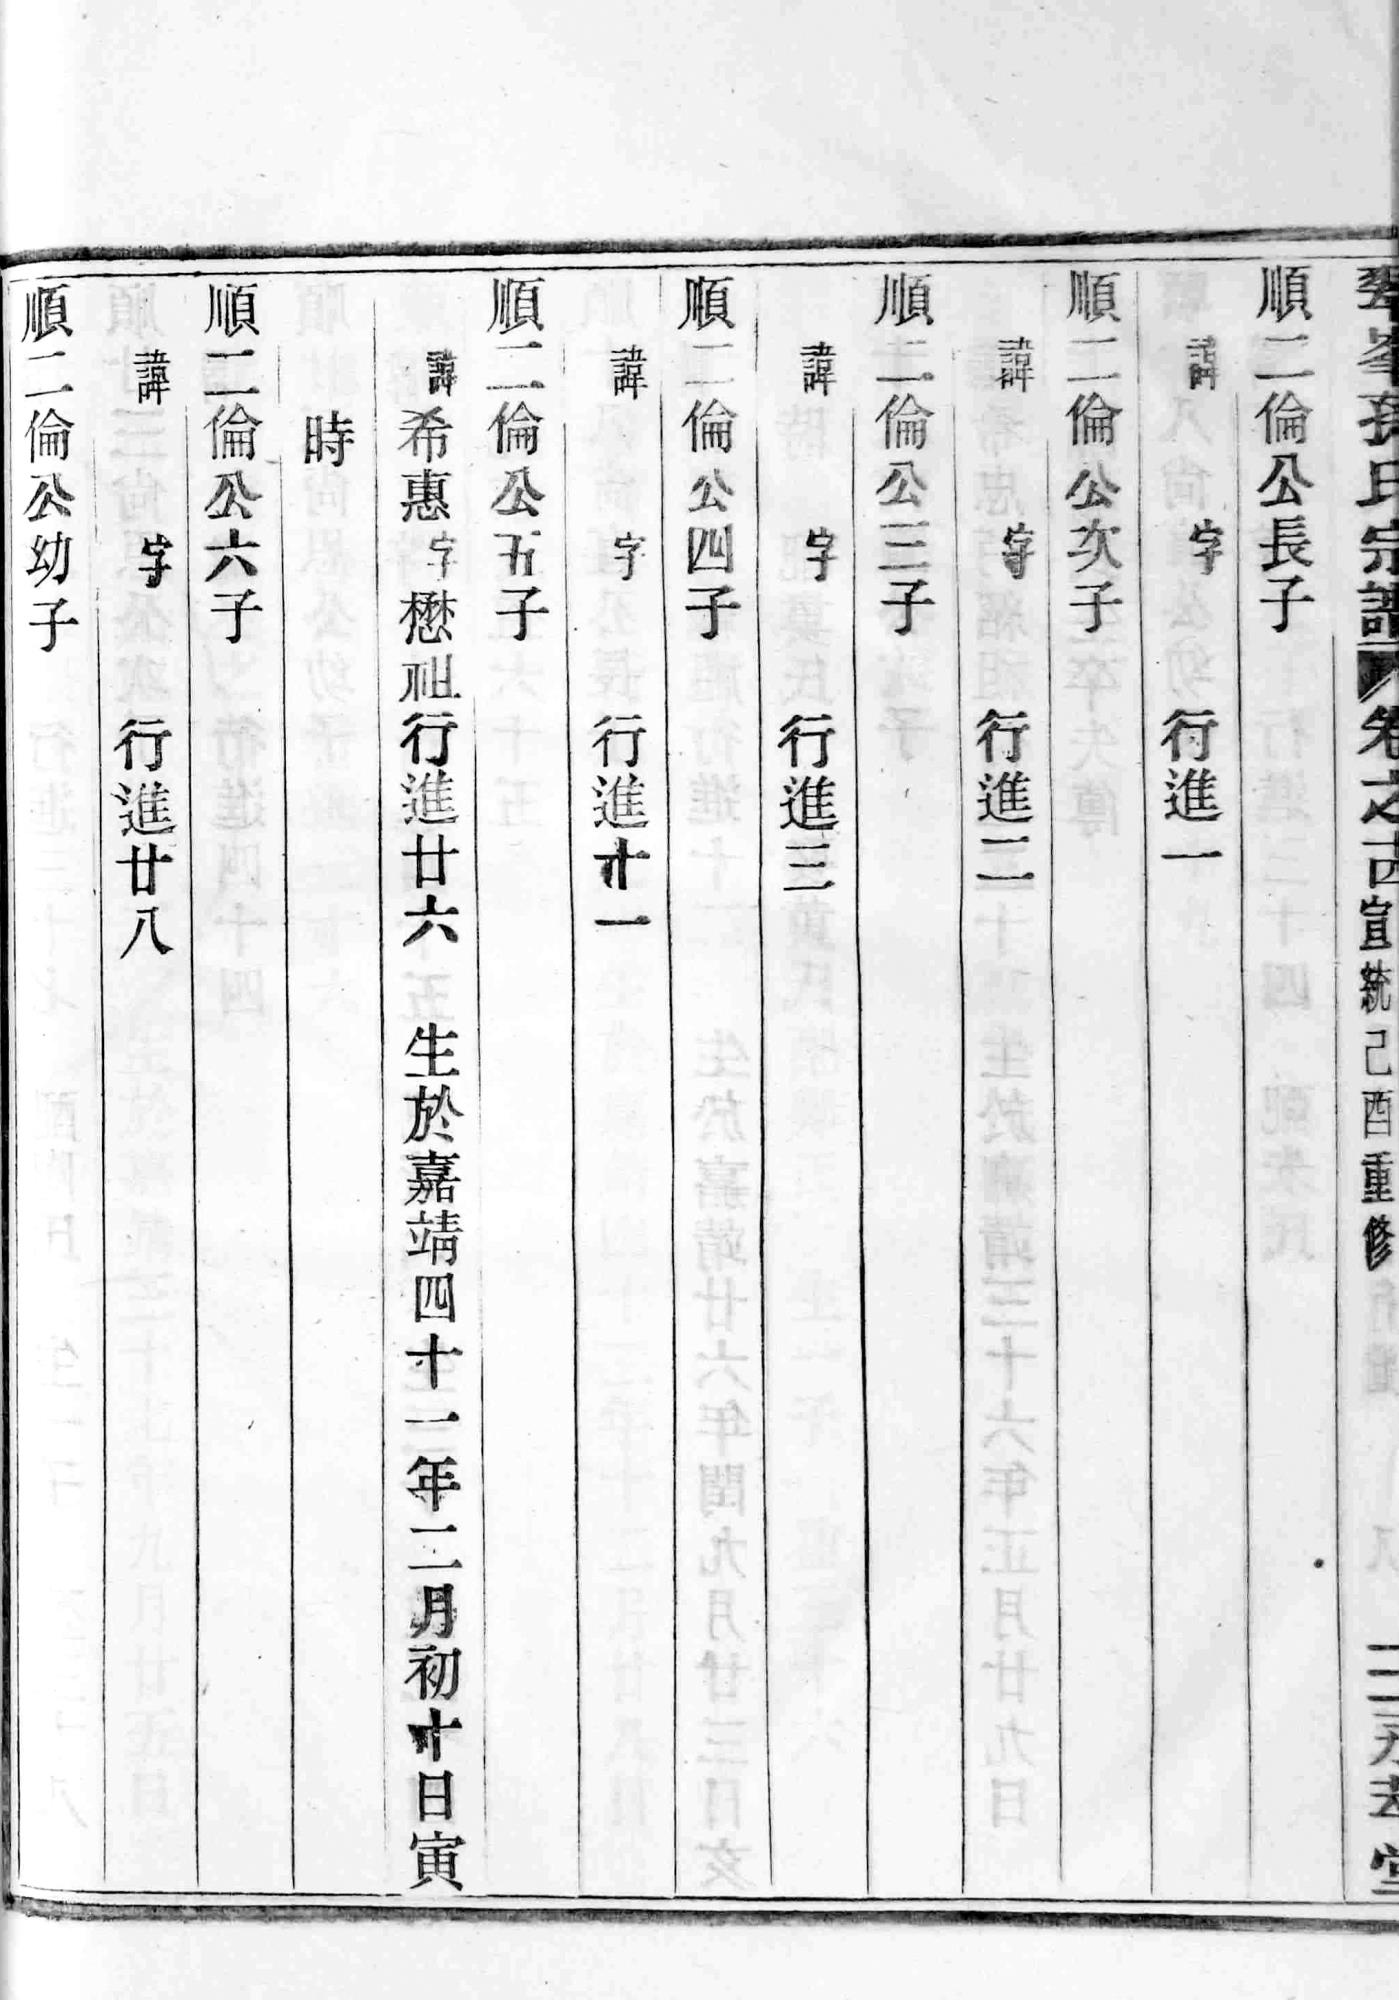 孫氏宗譜 卷之 宣統己酉重修
順二倫公長子
諱 字 行進一
順二倫公次子
諱 字 行進二
順二倫公三子
諱 字 行進三
順二倫公四子
諱 字 行進廿一
順二倫公五子
諱希惠字懋祖行進廿六 生於嘉靖四十一年二月初十日寅
時
順二倫公六子
諱 字 行進廿八
順二倫公幼子